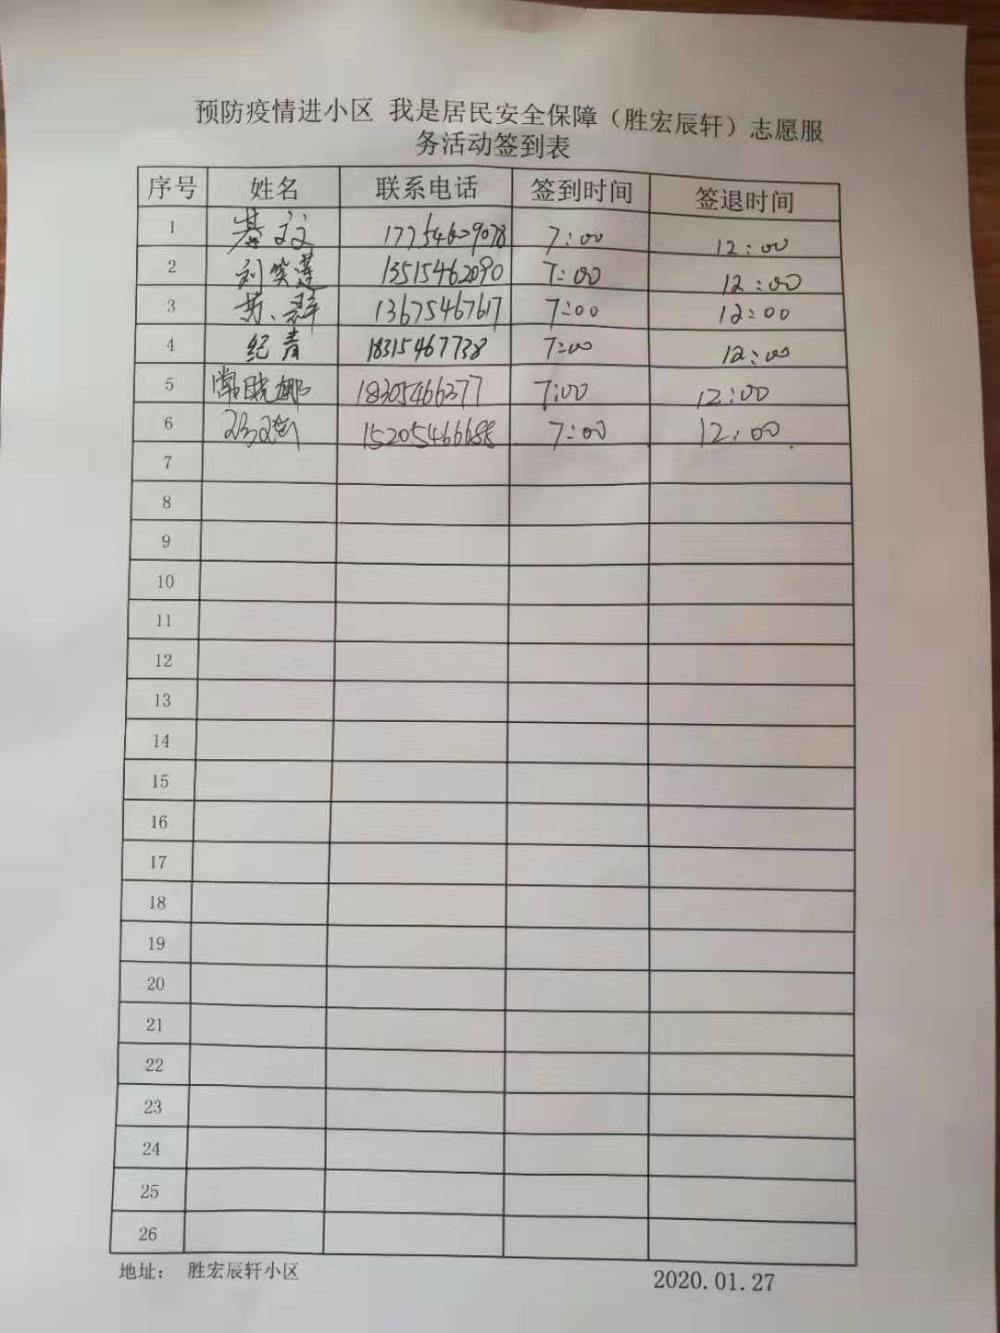 预防疫情进小区 我是居民安全保障（胜宏辰轩）志愿服
务活动签到表
序号 姓名 联系电话 签到时间 签退时间
1 7:00 12:00
2 刘笑莲 13515462090 7:00 12:00
3 13675467617 7:00 12:00
4 纪青 18315467738 7:00 12:00
5 常晓娜 18305466377 7:00 12:00
6 15205466688 7:00 12:00
7
8
9
10
11
12
13
14
15
16
17
18
19
20
21
22
23
24
25
26
地址： 胜宏辰轩小区 2020.01.27